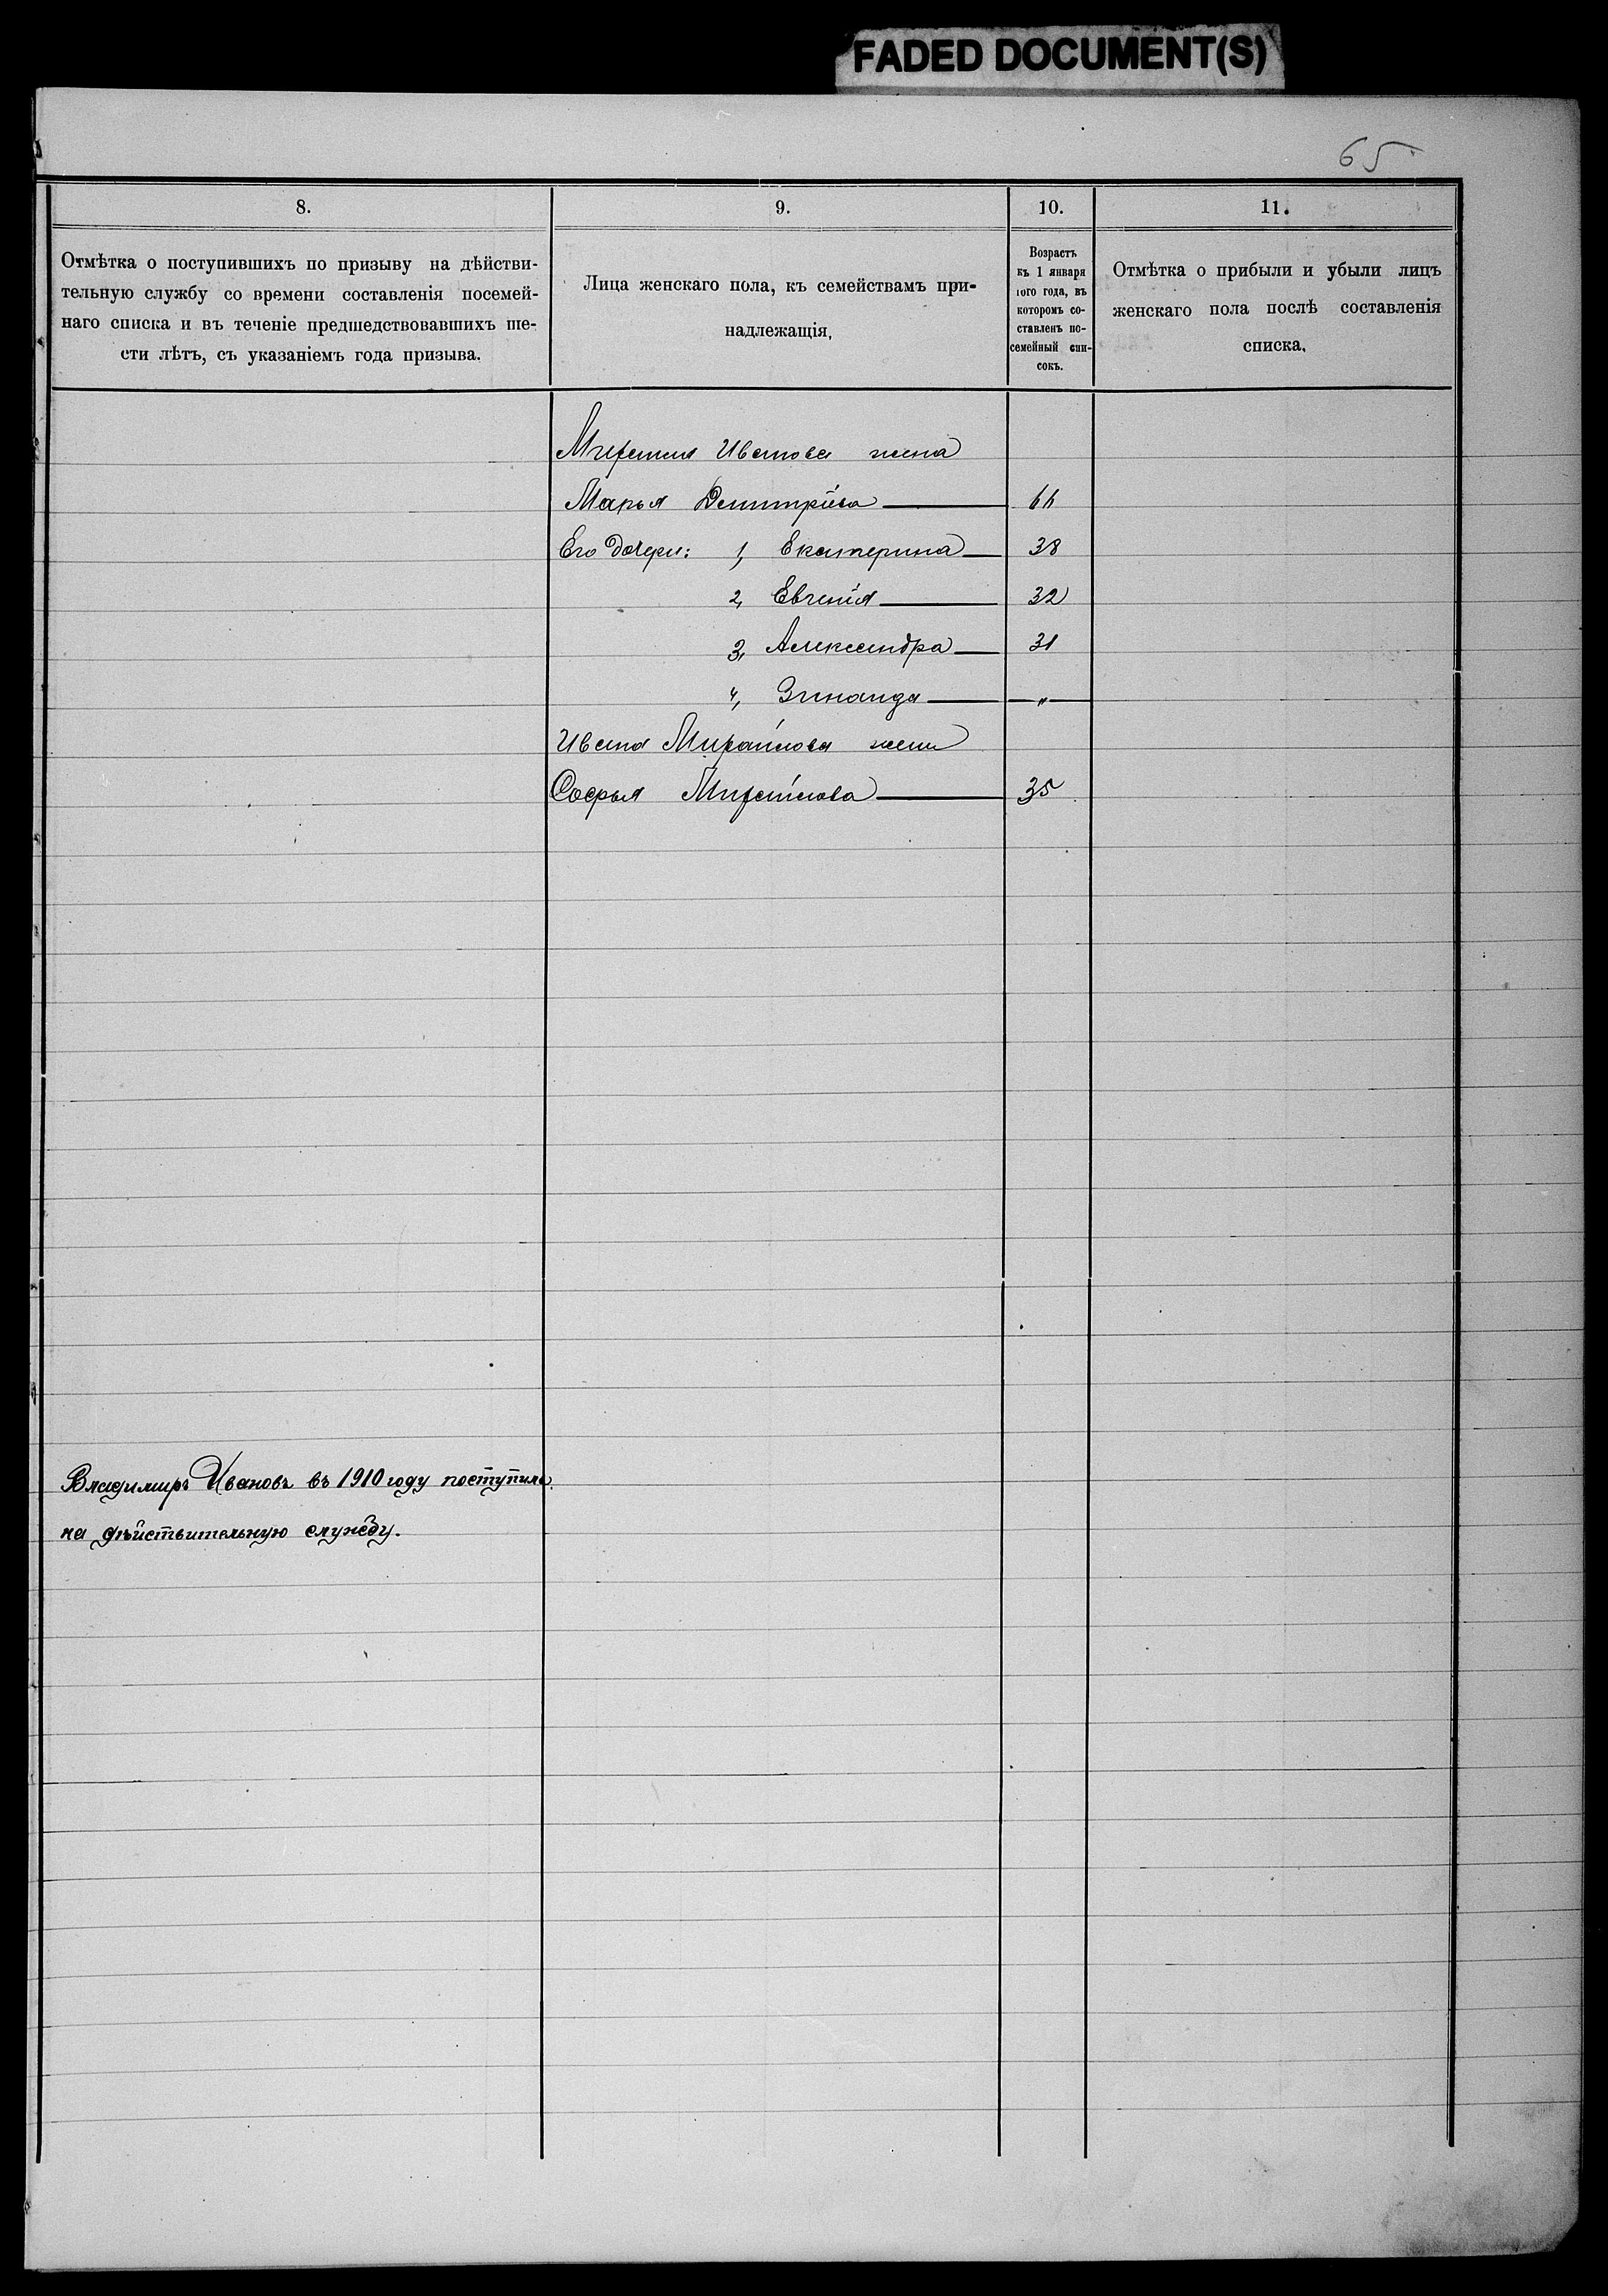 FADED DOCUMENT(S)
65
8.
Отмѣтка о поступившихъ по призыву на дѣйстви-
тельную службу со времени составленія посемей-
наго списка и въ теченіе предшедствовавшихъ ше-
сти лѣтъ, съ указаніемъ года призыва.
9.
Лица женскаго пола, къ семействамъ при-
надлежащія.
10.
Возрастъ
къ 1 января
того года, въ
которомъ со-
ставленъ по-
семейный спи-
сокъ.
11.
Отмѣтка о прибыли и убыли лицъ
женскаго пола послѣ составленія
списка.
Михаила Иванова жена
Марья Дмитріева 66
Его дочери: 1, Екатерина 38
2, Евгенія 32
3, Александра 31
4, Зинаида "
Ивана Михайлова жена
Софья Михайлова 35
Владимиръ Ивановъ въ 1910 году поступилъ
на дѣйствительную службу.